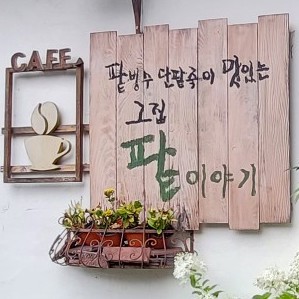 CAFE
팥빙수 단팥죽이 맛있는
그집
팥이야기